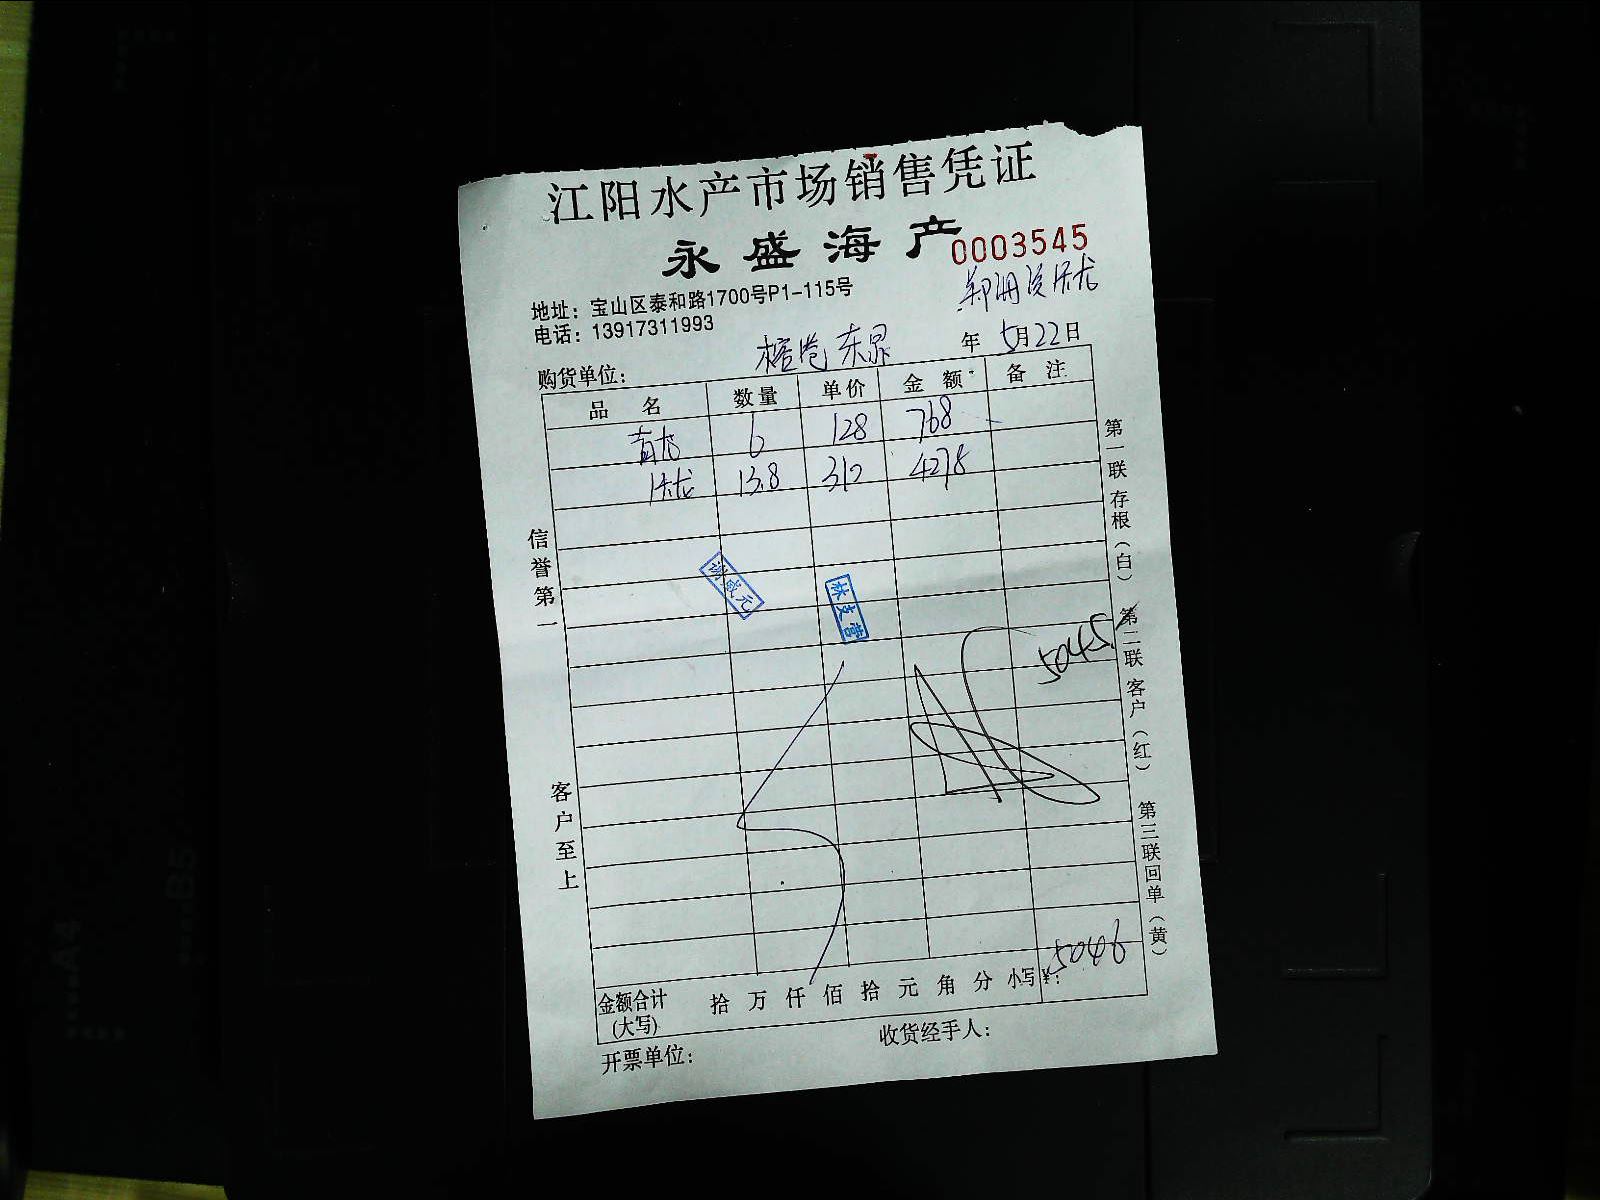 江阳水产市场销售凭证
永盛海产
0003545
地址：宝山区泰和路1700号P1-115号
电话：13917311993
年 5月22日
购货单位：
品 名 数量 单价 金 额 备 注
6 128 768
13.8 310 4278
谢盛元
林支营
5045
信誉第一
客户至上
第一联存根（白） 第二联客户（红） 第三联回单（黄）
金额合计(大写) 拾 万 仟 佰 拾 元 角 分 小写¥： 5046
开票单位： 收货经手人：